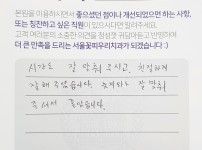 본원을 이용하시면서 좋으셨던 점이나 개선되었으면 하는 사항,
또는 칭찬하고 싶은 직원이 있으시다면 알려주세요.
고객 여러분의 소중한 의견을 정성껏 귀담아듣고 반영하여
더 큰 만족을 드리는 서울꽃피우리치과가 되겠습니다 :)
시간도 잘 맞춰 주시고, 친절하게
잘해 주셨습니다. 잘 맞춰
주셔서 좋았습니다.